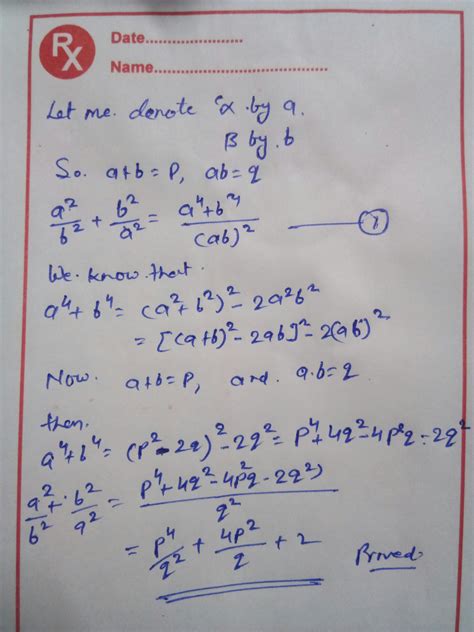 Rx
Date......................
Name.......................................
Let me. denote α by a.
B by. b
So. a+b = P, ab = q
a²/b² + b²/a² = (a⁴+b⁴)/(ab)² —— (1)
We. know. that.
a⁴ + b⁴ = (a²+b²)² - 2a²b²
= [(a+b)² - 2ab]² - 2(ab)²
Now. a+b = P, and. a.b = q
then.
a⁴+b⁴ = (P² - 2q)² - 2q² = P⁴ + 4q² - 4P²q - 2q²
a²/b² + b²/a² = (P⁴ + 4q² - 4P²q - 2q²)/q²
= P⁴/q² + 4P²/q + 2 Proved